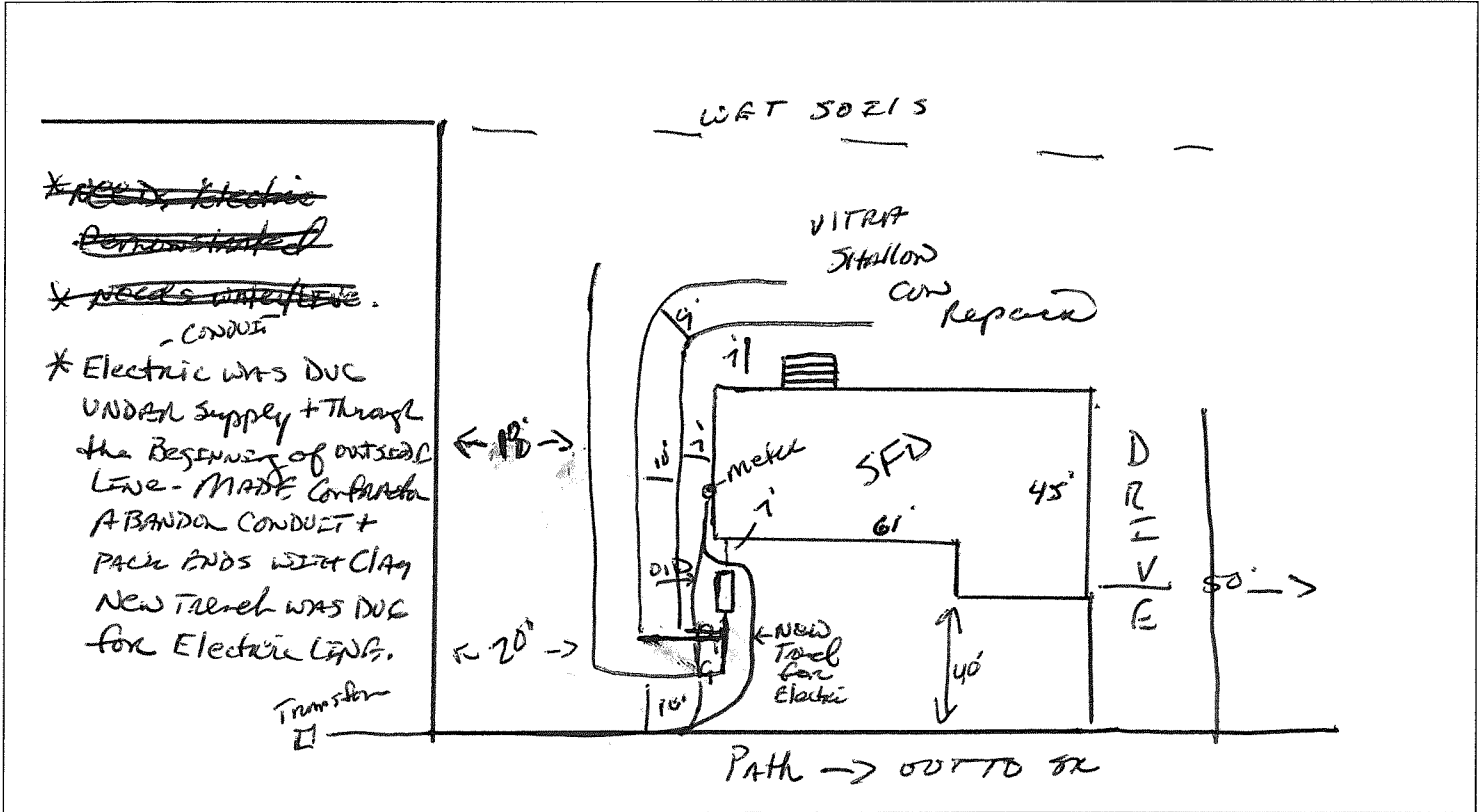 WET SOILS
* NEEDS Electric
Demonstrated
* NEEDS water/LINE.
- CONDUIT
* Electric WAS DUG
UNDER Supply + Through
the BEGINNING of OUTSIDE
LINE - MADE Contractor
ABANDON CONDUIT +
PACK ENDS WITH Clay
NEW Trench WAS DUG
for Electric LINE.
SHALLOW
Repair
9'
18'
10'
7'
meter
SFD
45'
61'
7'
OLD
DRIVE
50'
20'
NEW
Trench
for
Electric
40'
10'
Path → OUT TO SR